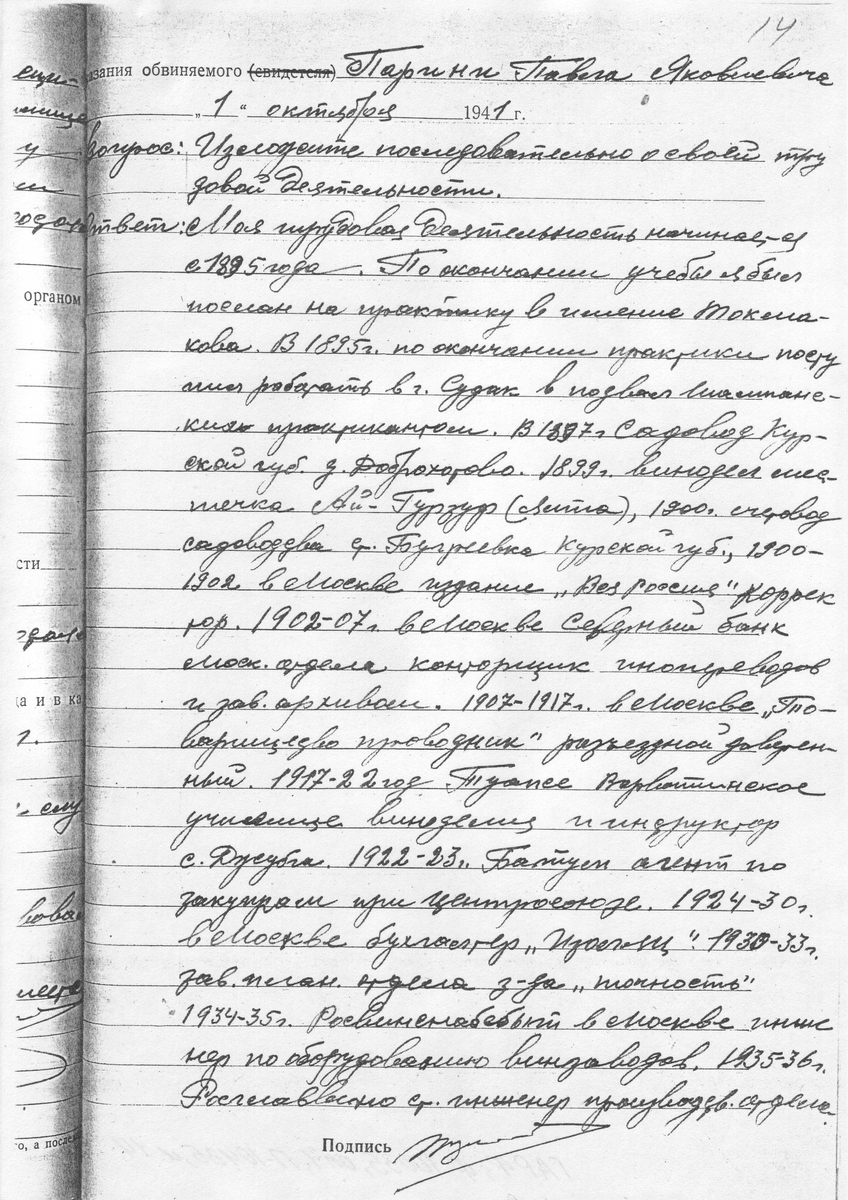 14
азания обвиняемого (свидетеля) Парини Павла Яковлевича
„1“ октября 1941 г.
Вопрос: Изложите последовательно о своей тру
довой деятельности.
Ответ: Моя трудовая деятельность начинается
с 1895 года. По окончании учебы я был
послан на практику в имение Токма-
кова. В 1895 г. по окончании практики посту
пил работать в г. Судак в подвал шампанс-
ких практикантом. В 1897 г садовод Кур-
ской губ. д. Доброхотово. 1899 г. винодел мес-
течка Ай-Гурзуф (Ялта), 1900 г. счетовод
садоводства ст. Бугреевка Курской губ., 1900-
1902 в Москве издание „Вся Россия" коррек
тор. 1902-07 г. в Москве Северный банк
моск. отдела конторщик инопереводов
и зав. архивом. 1907-1917 г. в Москве „То-
варищество проводник" разъездной доверен-
ный. 1917-22 год Туапсе
училище виноделия и индруктор
с. Джубга. 1922-23 г. Батум агент по
закупкам при Центросоюзе. 1924-30 г.
в Москве бухгалтер 1930-33 г.
зав. план. отдела з-да „точность"
1934-35 г. Росвинснабсбыт в Москве инже
нер по оборудованию винзаводов. 1935-36 г.
Росглаввино ст. инженер производств. отдела.
Подпись
органом
сти
да и в ка
г.
го, а послед